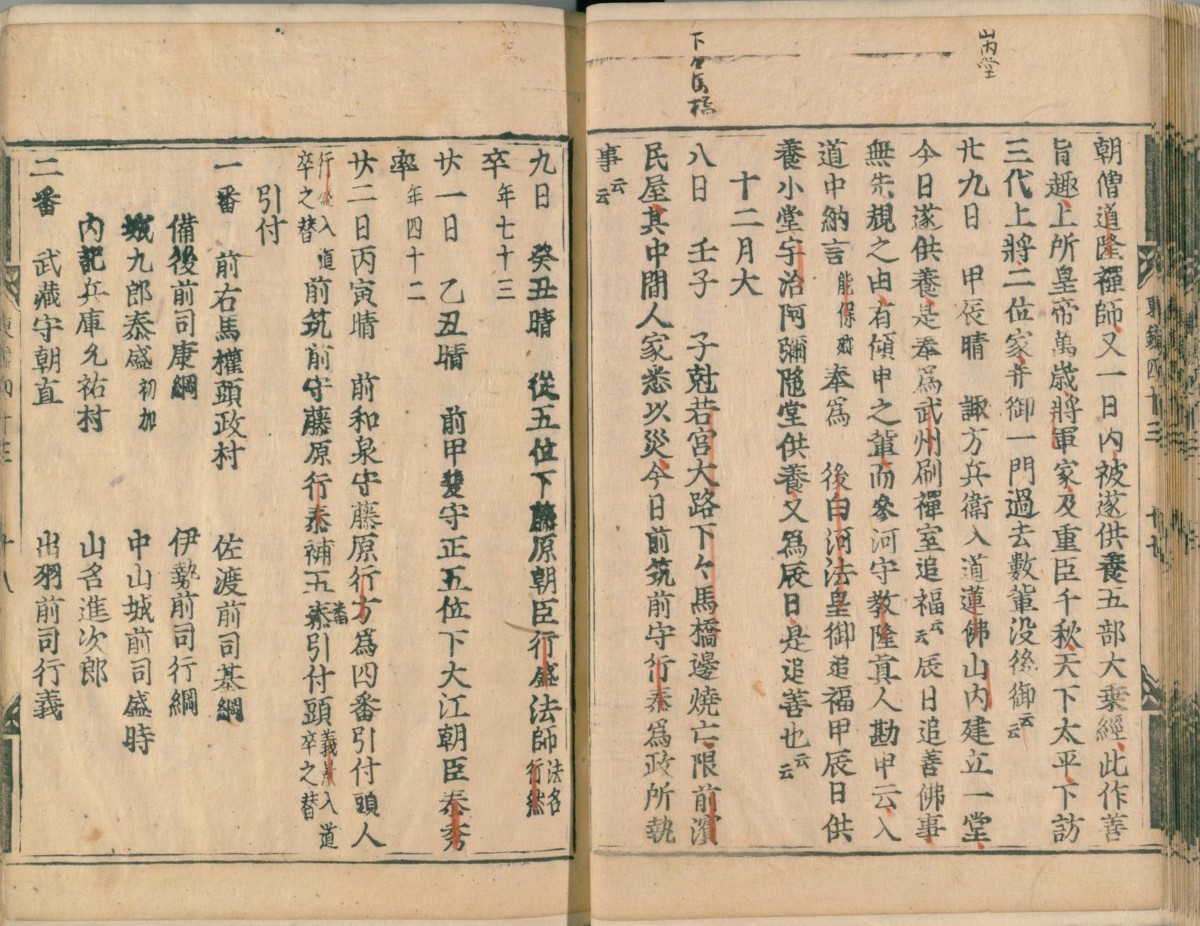 山内堂
下々馬橋
朝僧道隆禪師、又一日内、被遂供養五部大乗經、此作善
旨趣、上所皇帝萬歳、將軍家及重臣千秋、天下太平、下訪
三代上將、二位家、并御一門過去數輩没後御云云
廿九日　甲辰晴　諏方兵衛入道蓮佛山内建立一堂、
今日遂供養、是奉爲武州刷禪室追福云云辰日追善佛事、
無先規之由、有傾申之輩、而參河守教隆眞人勘申云、入
道中納言能保卿奉爲　後白河法皇御追福甲辰日供
養小堂、宇治阿彌陁堂供養、又爲辰日、是追善也云云
十二月大
八日　壬子　子尅若宮大路下々馬橋邊燒亡、限前濱
民屋、其中間人家悉以災、今日前筑前守行泰爲政所執
事云云
東鑑四十三　十七
九日　癸丑晴　從五位下藤原朝臣行盛法師法名行然
卒年七十三
廿一日　乙丑晴　前甲斐守正五位下大江朝臣泰秀
卒年四十二
廿二日丙寅晴　前和泉守藤原行方爲四番引付頭人
行盛入道卒之替前筑前守藤原行泰補五番引付頭義景入道卒之替
引付
一番　前右馬權頭政村　佐渡前司基綱
備後前司康綱　伊勢前司行綱
城九郎泰盛初加　中山城前司盛時
内記兵庫允祐村　山名進次郎
二番　武藏守朝直　出羽前司行義